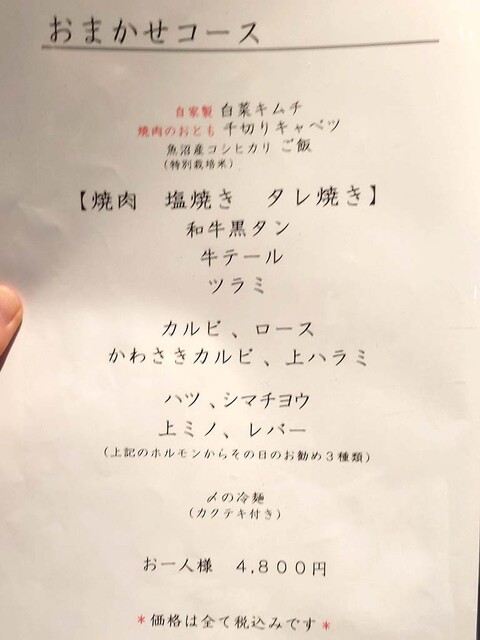 おまかせコース
自家製 白菜キムチ
焼肉のおとも 千切りキャベツ
魚沼産コシヒカリ ご飯
(特別栽培米)
【焼肉　塩焼き　タレ焼き】
和牛黒タン
牛テール
ツラミ
カルビ、ロース
かわさきカルビ、上ハラミ
ハツ、シマチョウ
上ミノ、レバー
(上記のホルモンからその日のお勧め3種類)
〆の冷麺
(カクテキ付き)
お一人様　4,800円
*価格は全て税込みです*